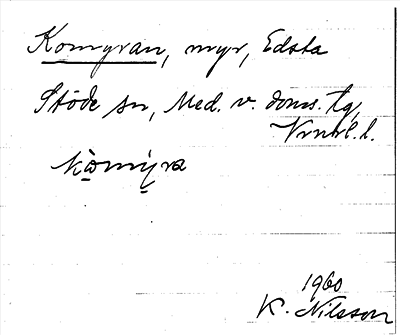 Komyran, myr, Edsta
Stöde sn, Med. v. doms. tg,
Vrnrl. l.
kòmýra
1960
K. Nilsson